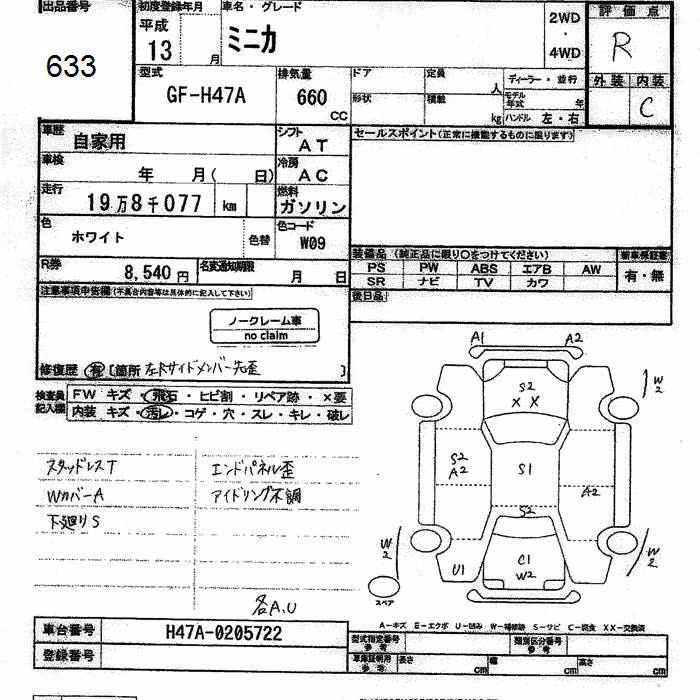 出品番号
633
初度登録年月
平成
13 月
車名・グレード
ミニカ
2WD
・
4WD
評価点
R
外装 内装
C
型式
GF-H47A
排気量
660
CC
ドア
定員
人
ディーラー・並行
形状
積載
kg
モデル年式
年
ハンドル 左・右
車歴
自家用
シフト
AT
セールスポイント(正常に機能するものに限ります)
車検
年 月( 日)
冷房
AC
走行
19万8千077 km
燃料
ガソリン
色
ホワイト
色替
色コード
W09
装備品 (純正品に限り○をつけてください)
新車保証書
PS PW ABS エアB AW
SR ナビ TV カワ
有・無
R券
8,540 円
名変通知期限
月 日
後日品
注意事項申告欄(不具合内容等は具体的に記入して下さい)
ノークレーム車
no claim
修復歴 有 [箇所 左Rサイドメンバー先歪 ]
検査員
記入欄
FW キズ・飛石・ヒビ割・リペア跡・×要
内装 キズ・汚レ・コゲ・穴・スレ・キレ・破レ
スタッドレスT
エンドパネル歪
WカバーA
アイドリング不調
下廻りS
各A,U
A1 A2
S2
X X
W2
S2
A2
S1
A2
S2
W2
C1
W2
W2
U1
スペア
A-キズ E-エクボ U-凹み W-補修跡 S-サビ C-腐食 XX-交換済
車台番号
H47A-0205722
登録番号
型式指定番号
参考
類別区分番号
参考
車庫証明用
参考
長さ cm
幅 cm
高さ cm